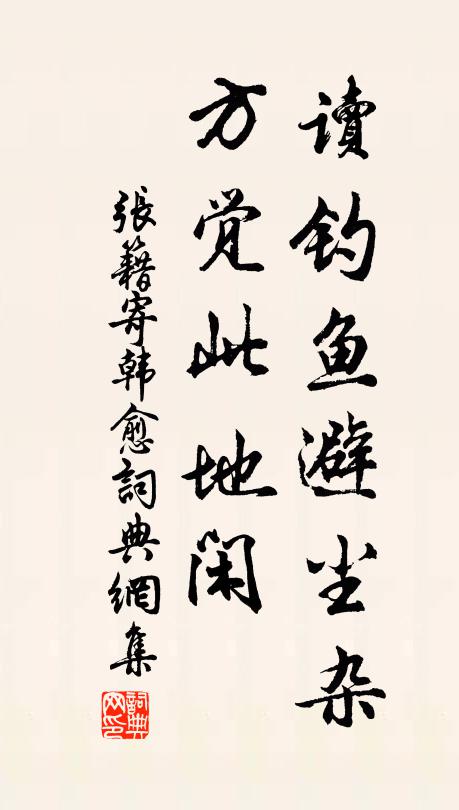 读钓鱼避尘杂
方觉此地闲
張籍寄韩愈詞典網集
詞典网印